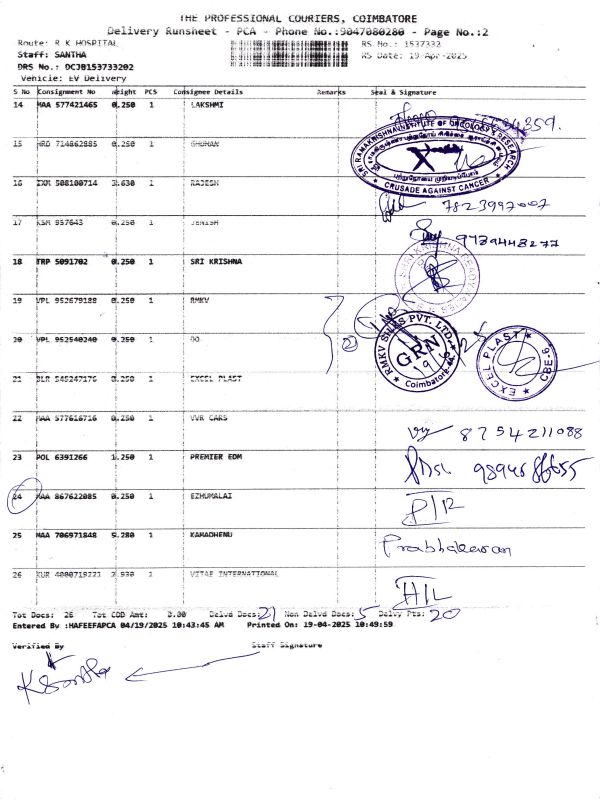 THE PROFESSIONAL COURIERS, COIMBATORE
Delivery Runsheet - PCA - Phone No.:9047080280 - Page No.:2
Route: R K HOSPITAL
RS No.: 1537332
Staff: SANTHA
RS Date: 19-Apr-2025
DRS No.: DCJB153733202
Vehicle: EV Delivery
S No Consignment No Weight PCS Consignee Details Remarks Seal & Signature
14 MAA 577421465 0.250 1 LAKSHMI
SRI RAMAKRISHNA INSTITUTE OF ONCOLOGY & RESEARCH
CRUSADE AGAINST CANCER
15 HRD 714862885 0.250 1
16 IXM 508100714 3.630 1 RAJESH
7823997007
17 KSM 957643 0.250 1 JENISH
9789448277
18 TRP 5091702 0.250 1 SRI KRISHNA
19 VPL 952679188 0.250 1 RMKV
RMKV SILKS PVT. LTD.
GRN
Coimbatore
20 VPL 952540240 0.250 1 DO
21 BLR 545247176 0.250 1 EXCEL PLAST
EXCEL PLAST CBE-9
22 MAA 577616716 0.250 1 VVR CARS
8754211088
23 POL 6391266 1.250 1 PREMIER EDM
24 MAA 867622085 0.250 1 EZHUMALAI
P/R
25 MAA 706971848 5.280 1 KAMADHENU
Prabhakaran
26 KUR 4000719221 2.930 1 VITAE INTERNATIONAL
H/L
Tot Docs: 26 Tot COD Amt: 0.00 Delvd Docs: 21 Non Delvd Docs: 5 Delvy Pts: 20
Entered By :HAFEEFAPCA 04/19/2025 10:43:45 AM Printed On: 19-04-2025 10:49:59
Verified By Staff Signature
K Santha